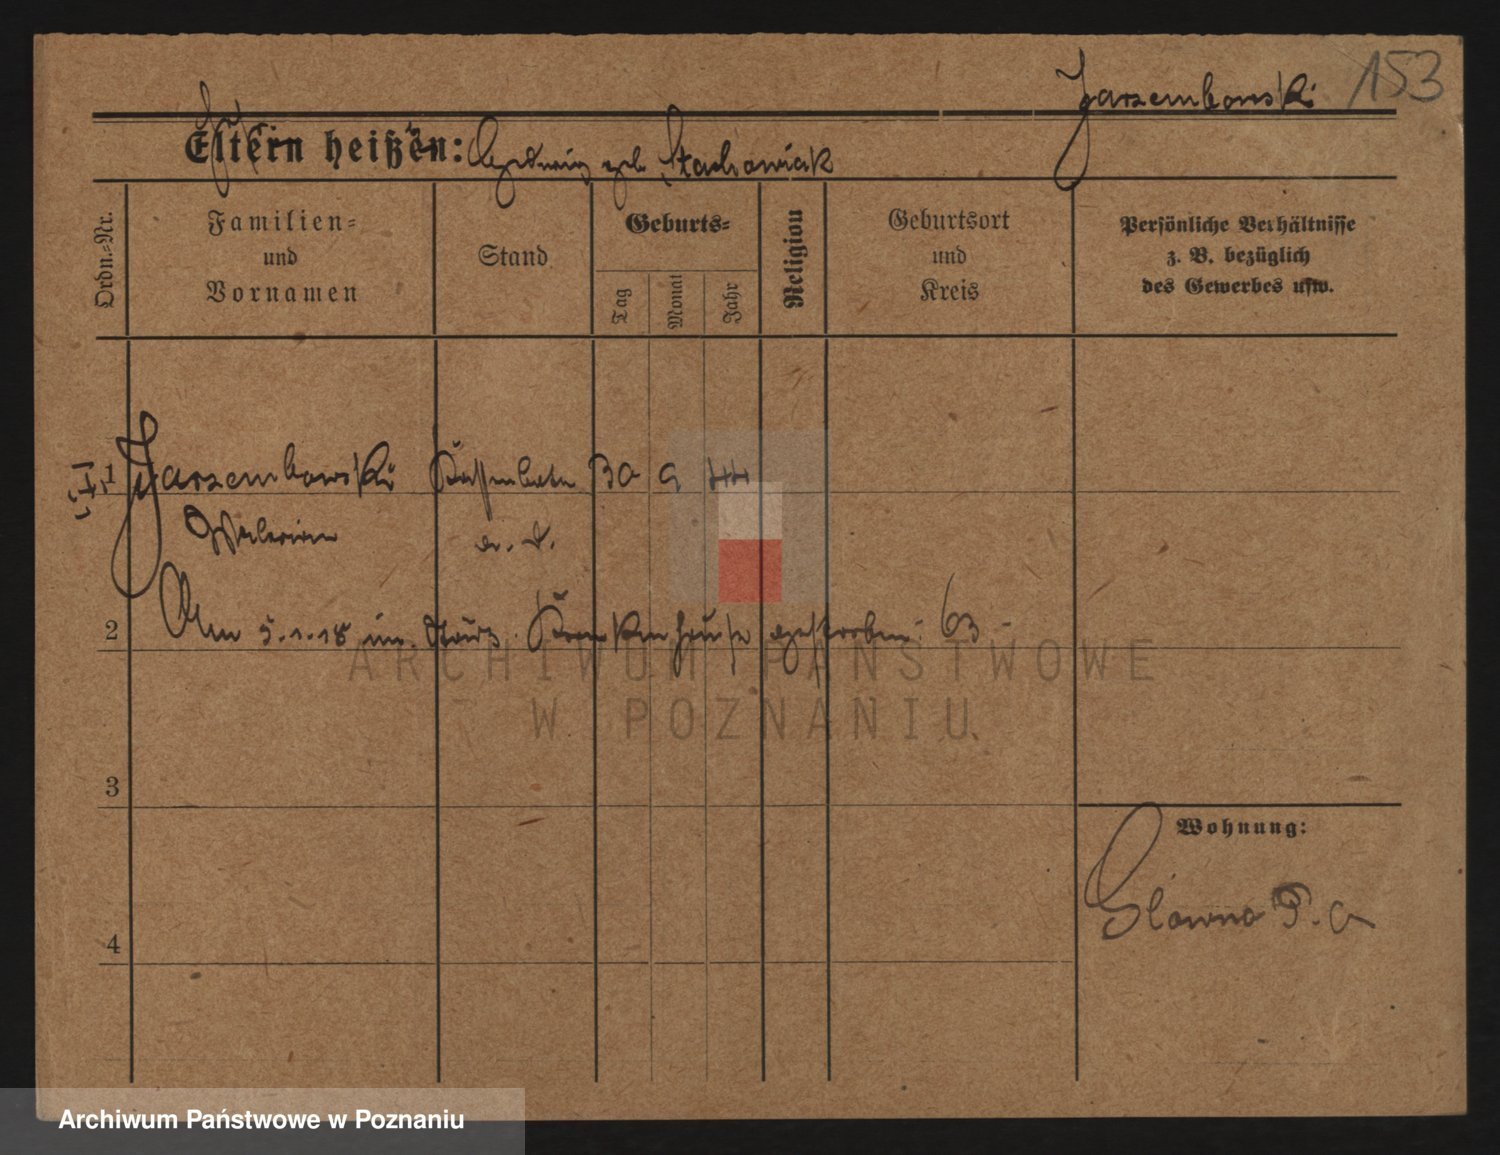 Jarzembowski 153
Eltern heißen: Hedwig geb. Stachowiak
Ordn.=Nr.
Familien=
und
Vornamen
Stand
Geburts=
Tag
Monat
Jahr
Religion
Geburtsort
und
Kreis
Persönliche Verhältnisse
z. B. bezüglich
des Gewerbes usw.
1 Jarzembowski Kassenbote 30 9 44
Walerian a. D.
2 Am 5.1.18 im Krankenhause gestorben: 63
3
4
Wohnung:
Glowno P. a
ARCHIWUM PAŃSTWOWE
W POZNANIU
Archiwum Państwowe w Poznaniu